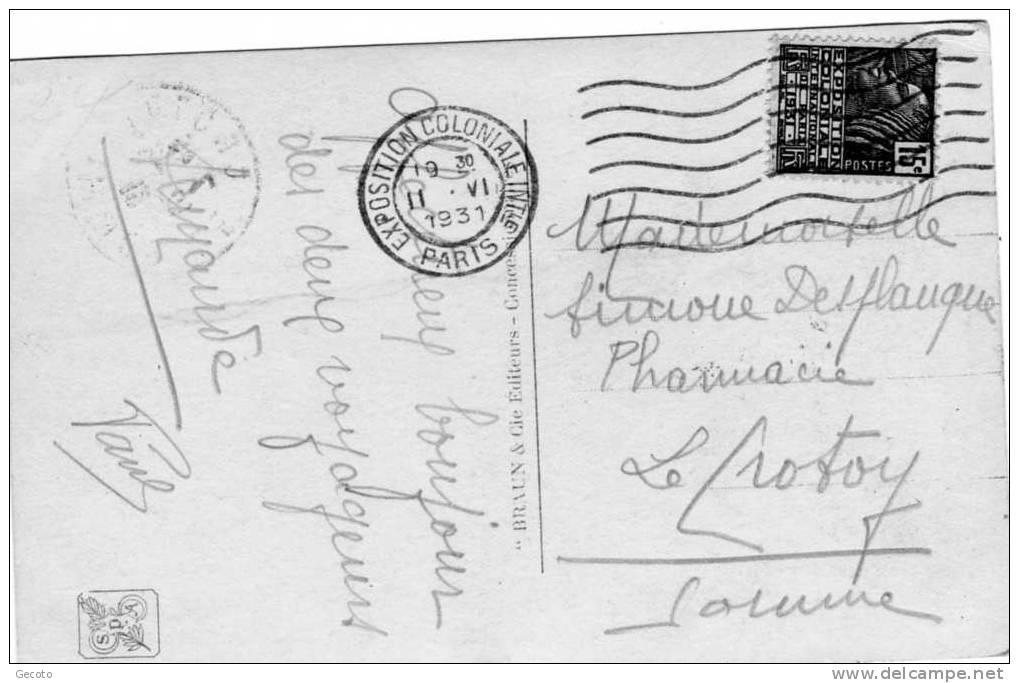 bonjour
des deux voyageurs
Fernande
Paul
EXPOSITION COLONIALE INTLE
PARIS
19 30
11 VI
1931
" BRAUN & Cie Editeurs - Conces
EXPOSITION
COLONIALE
INTERNATIONALE
PARIS 1931
POSTES
15c
Mademoiselle
Simone Desflanque
Pharmacie
Le Crotoy
Somme
SPA
Gecoto
www.delcampe.net